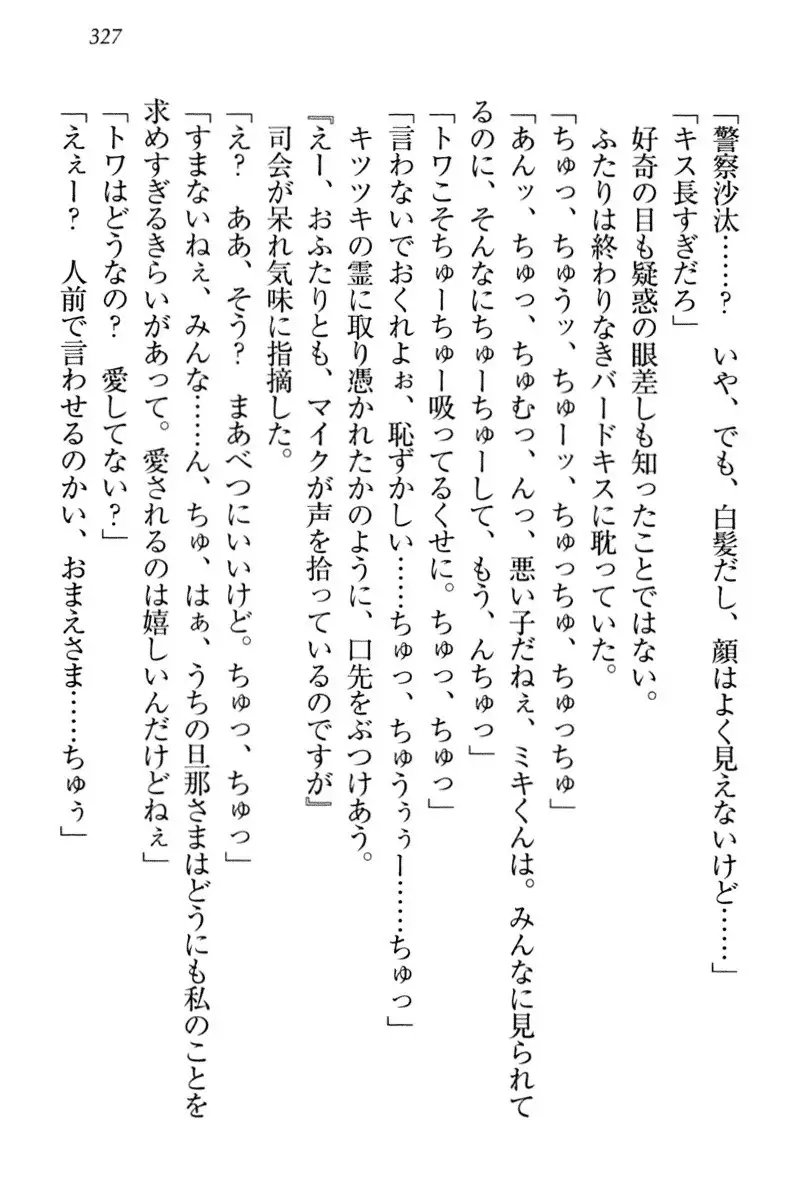 327
「警察沙汰……？　いや、でも、白髪だし、顔はよく見えないけど……」
「キス長すぎだろ」
　好奇の目も疑惑の眼差しも知ったことではない。
　ふたりは終わりなきバードキスに耽っていた。
「ちゅっ、ちゅうッ、ちゅーッ、ちゅっちゅ、ちゅっちゅ」
「あんッ、ちゅっ、ちゅむっ、んっ、悪い子だねぇ、ミキくんは。みんなに見られて
るのに、そんなにちゅーちゅーして、もう、んちゅっ」
「トワこそちゅーちゅー吸ってるくせに。ちゅっ、ちゅっ」
「言わないでおくれよぉ、恥ずかしい……ちゅっ、ちゅうぅぅー……ちゅっ」
　キツツキの霊に取り憑かれたかのように、口先をぶつけあう。
『えー、おふたりとも、マイクが声を拾っているのですが』
　司会が呆れ気味に指摘した。
「え？　ああ、そう？　まあべつにいいけど。ちゅっ、ちゅっ」
「すまないねぇ、みんな……ん、ちゅ、はぁ、うちの旦那さまはどうにも私のことを
求めすぎるきらいがあって。愛されるのは嬉しいんだけどねぇ」
「トワはどうなの？　愛してない？」
「えぇー？　人前で言わせるのかい、おまえさま……ちゅぅ」